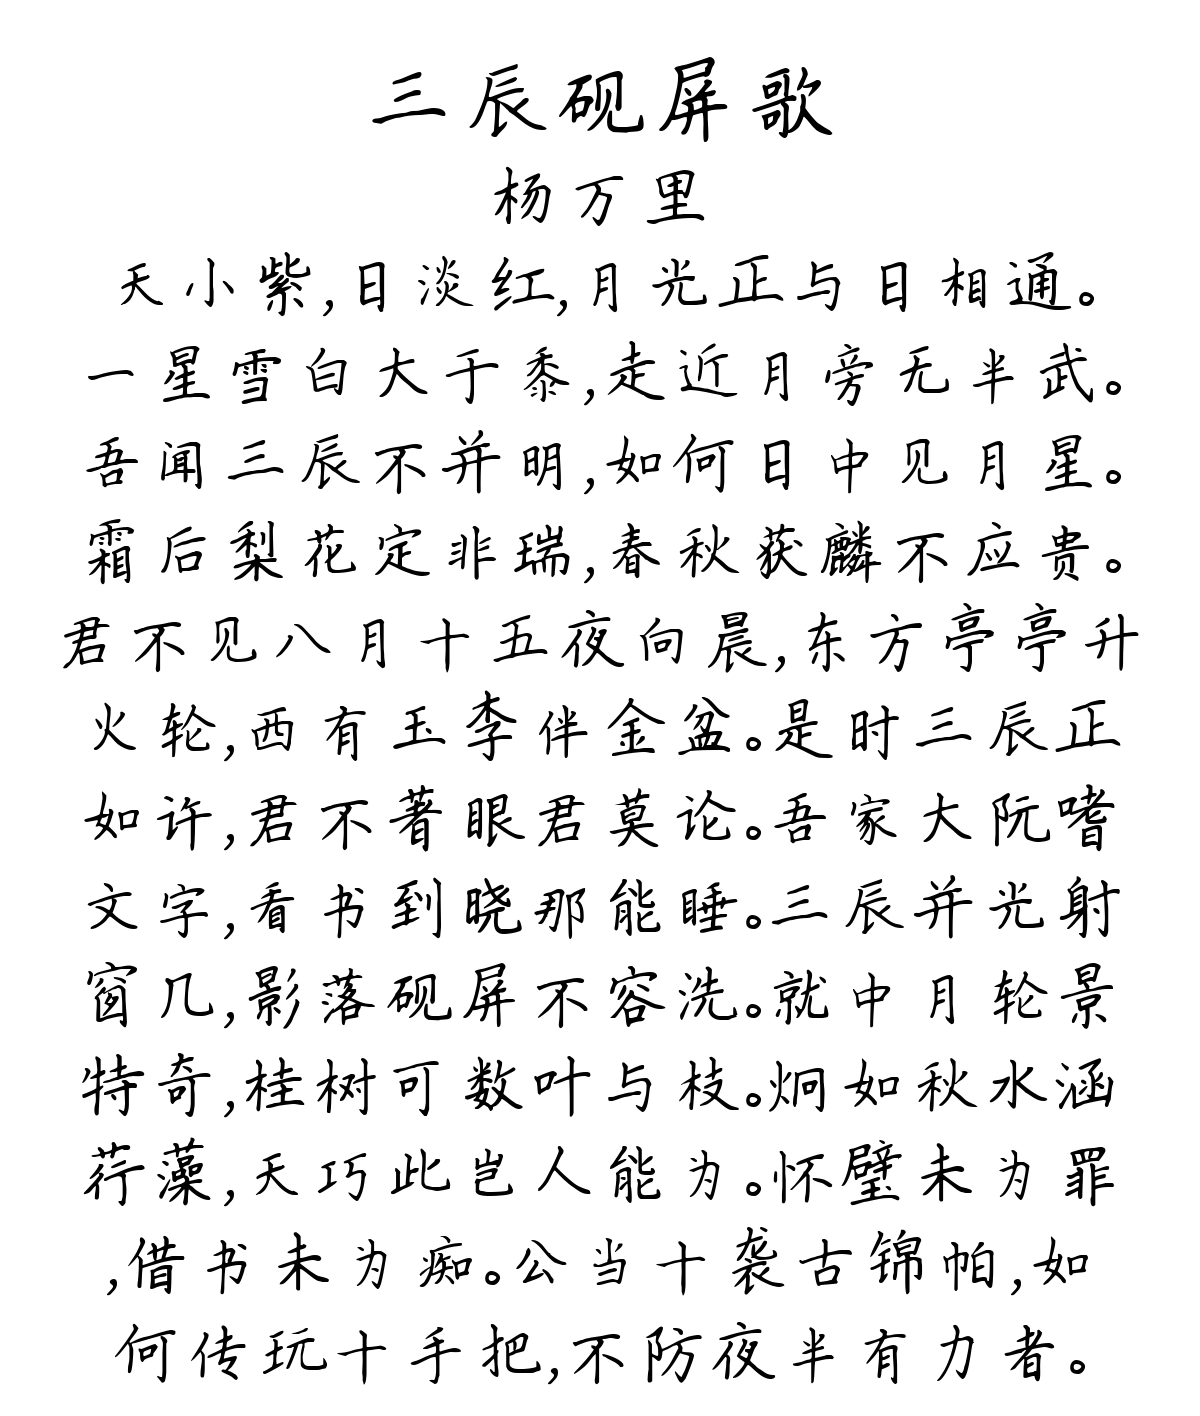 三辰砚屏歌
杨万里
天小紫,日淡红,月光正与日相通。
一星雪白大于黍,走近月旁无半武。
吾闻三辰不并明,如何日中见月星。
霜后梨花定非瑞,春秋获麟不应贵。
君不见八月十五夜向晨,东方亭亭升
火轮,西有玉李伴金盆。是时三辰正
如许,君不著眼君莫论。吾家大阮嗜
文字,看书到晓那能睡。三辰并光射
窗几,影落砚屏不容洗。就中月轮景
特奇,桂树可数叶与枝。炯如秋水涵
荇藻,天巧此岂人能为。怀璧未为罪
,借书未为痴。公当十袭古锦帕,如
何传玩十手把,不防夜半有力者。